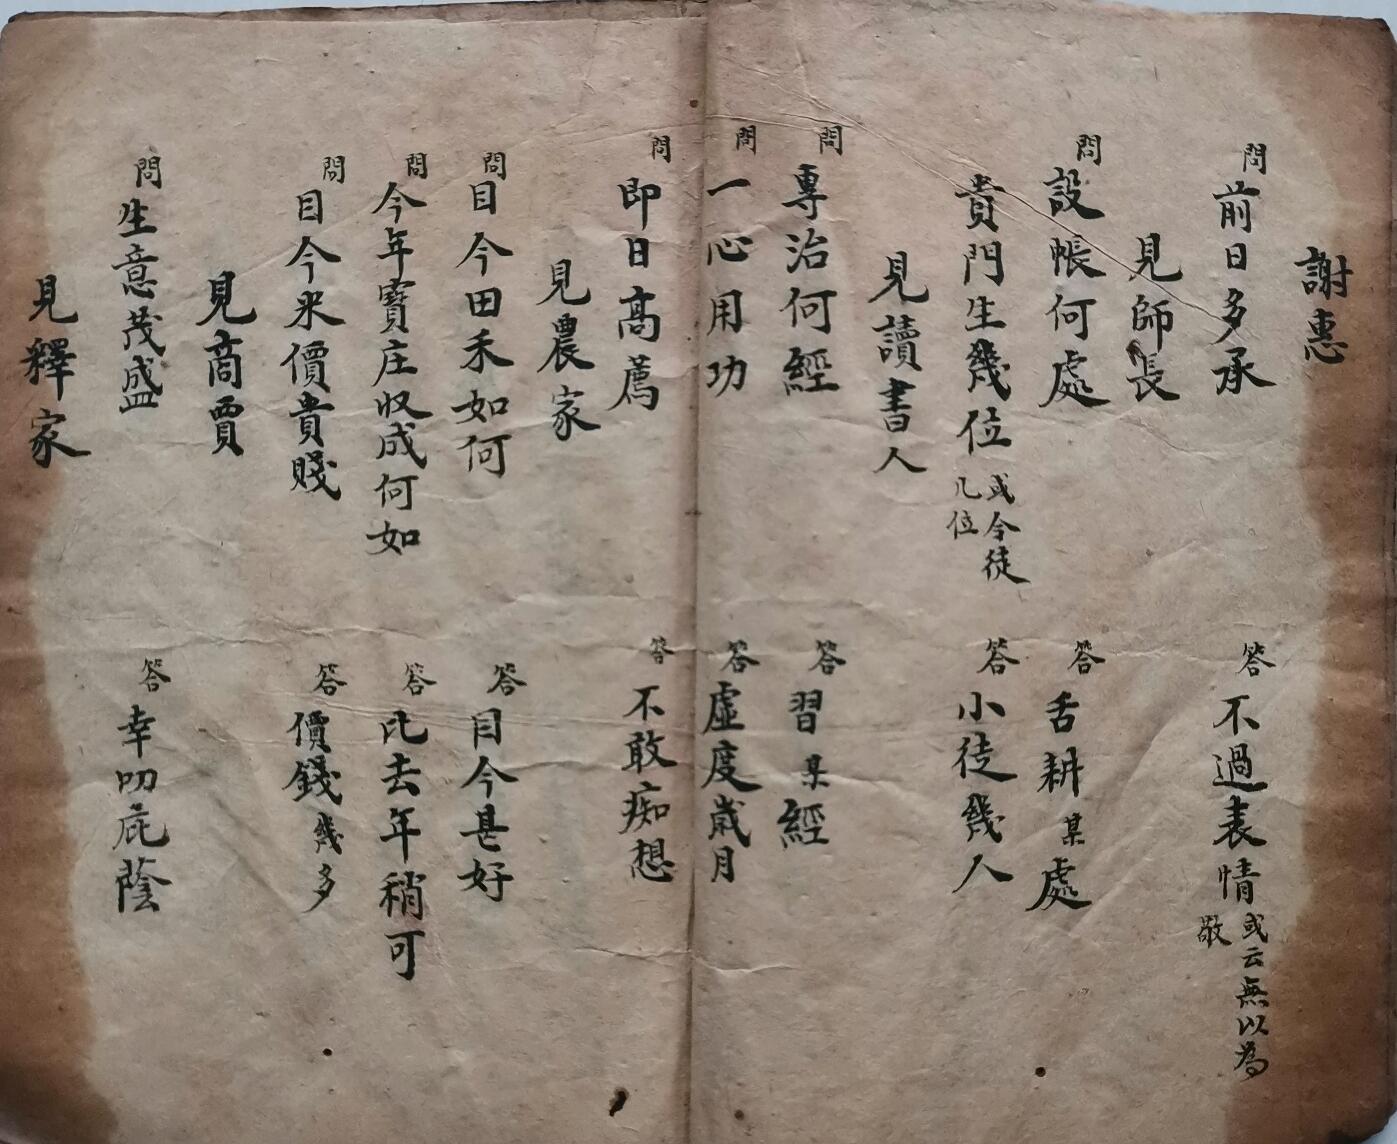 謝惠
問 前日多承
答 不過表情 或云無以為敬
見師長
問 設帳何處
答 舌耕某處
貴門生幾位 或令徒几位
答 小徒幾人
見讀書人
問 專治何經
答 習某經
問 一心用功
答 虛度歲月
問 即日高薦
答 不敢痴想
見農家
問 目今田禾如何
答 目今甚好
問 今年寶庄收成何如
答 比去年稍可
問 目今米價貴賤
答 價錢幾多
見商賈
問 生意茂盛
答 幸叨庇蔭
見釋家